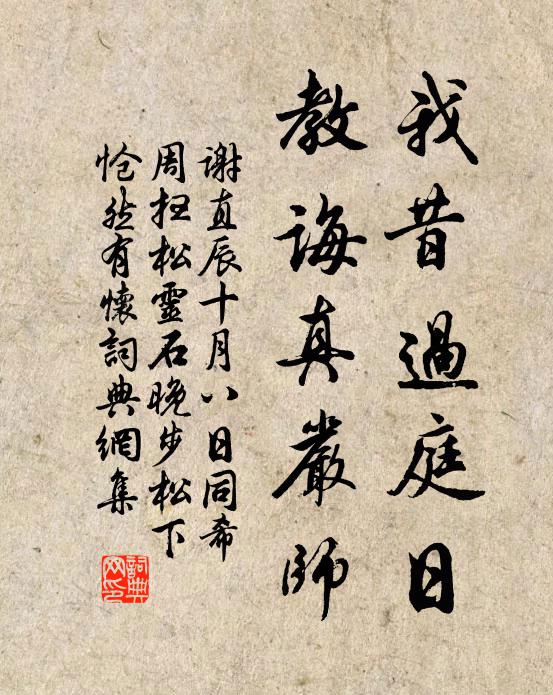 我昔過庭日
教誨真嚴師
謝直辰十月八日同希
周扫松靈石晚步松下
怆然有懷詞典網集
詞典
网印